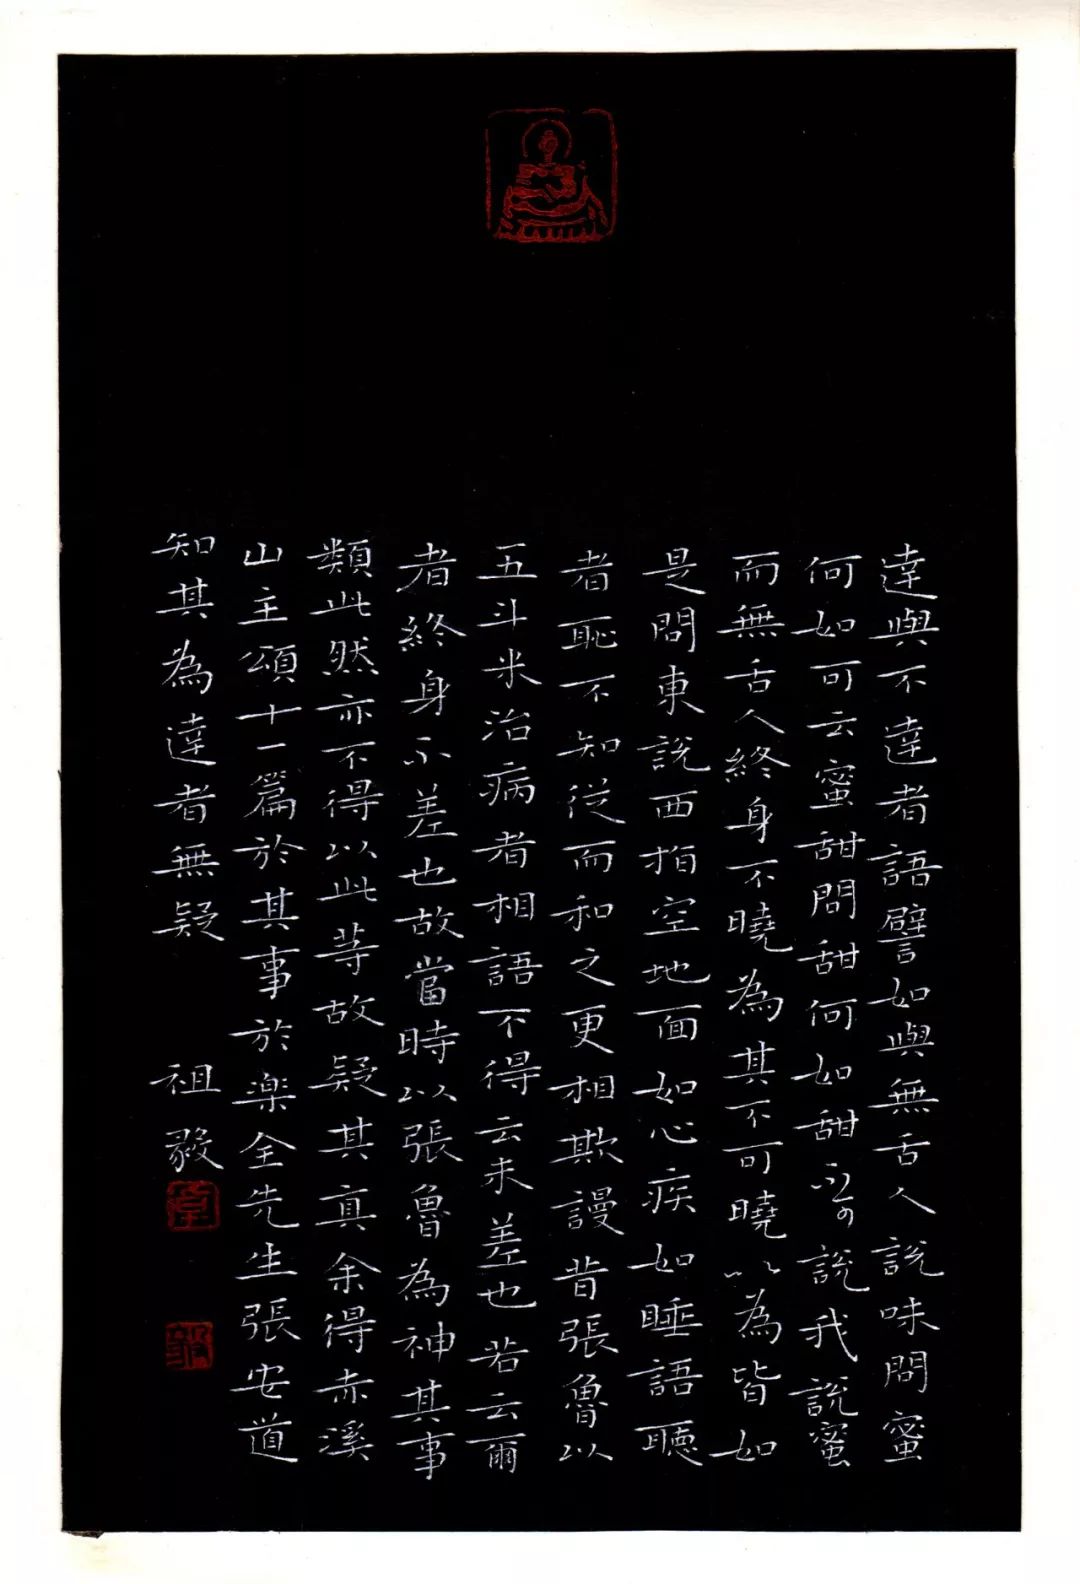 達與不達者語譬如與無舌人說味問蜜
何如可云蜜甜問甜何如甜不可說我說蜜
而無舌人終身不曉為其不可曉以為皆如
是問東說西指空地面如心疾如睡語聽
者恥不知從而和之更相欺謾昔張魯以
五斗米治病者相語不得云未差也若云爾
者終身不差也故當時以張魯為神其事
類此然亦不得以此等故疑其真余得赤溪
山主頌十一篇於其事於樂全先生張安道
知其為達者無疑 祖毅